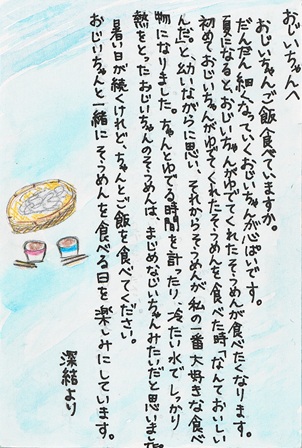 おじいちゃんへ
おじいちゃんご飯食べていますか。
だんだん細くなっていくおじいちゃんが心ぱいです。
夏になると、おじいちゃんがゆでてくれたそうめんが食べたくなります。
初めておじいちゃんがゆでてくれたそうめんを食べた時「なんておいしい
んだ。」と幼いながらに思い、それからそうめんが私の一番大好きな食べ
物になりました。ちゃんとゆでる時間を計ったり、冷たい水でしっかり
熱をとったおじいちゃんのそうめんは、まじめなじいちゃんみたいだと思いました。
暑い日が続くけれど、ちゃんとご飯を食べてください。
おじいちゃんと一緒にそうめんを食べる日を楽しみにしています。
深結より